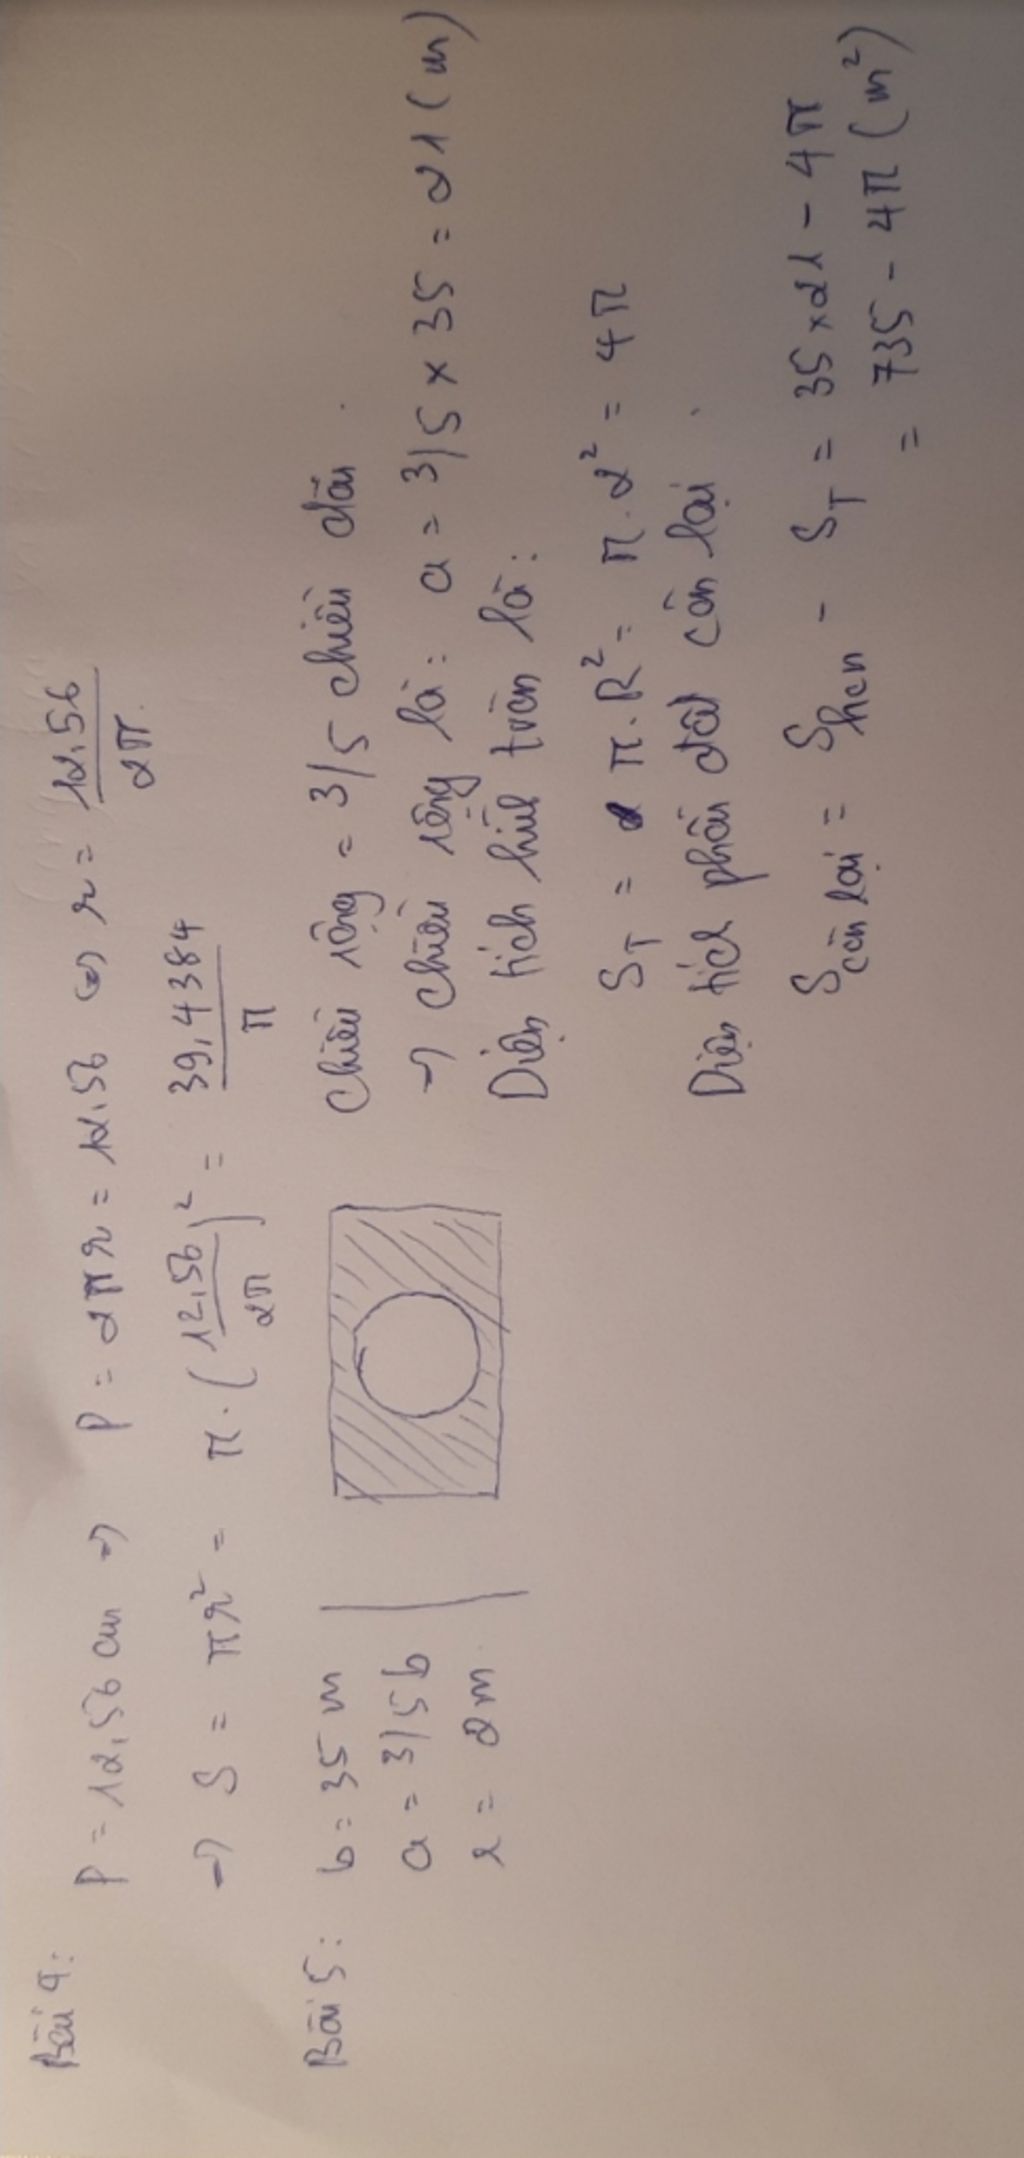 Bài 4:
P = 12,56 cm => P = 2πr = 12,56 (=) r = 12,56 / 2π
=> S = πr² = π.(12,56 / 2π)² = 39,4384 / π
Bài 5: b = 35 m
a = 3/5 b
r = 2m
Chiều rộng = 3/5 chiều dài.
=> chiều rộng là: a = 3/5 x 35 = 21 (m)
Diện tích hình tròn là:
S_T = π.R² = π.2² = 4π
Diện tích phần đất còn lại.
S còn lại = S hcn - S_T = 35 x 21 - 4π
= 735 - 4π (m²)